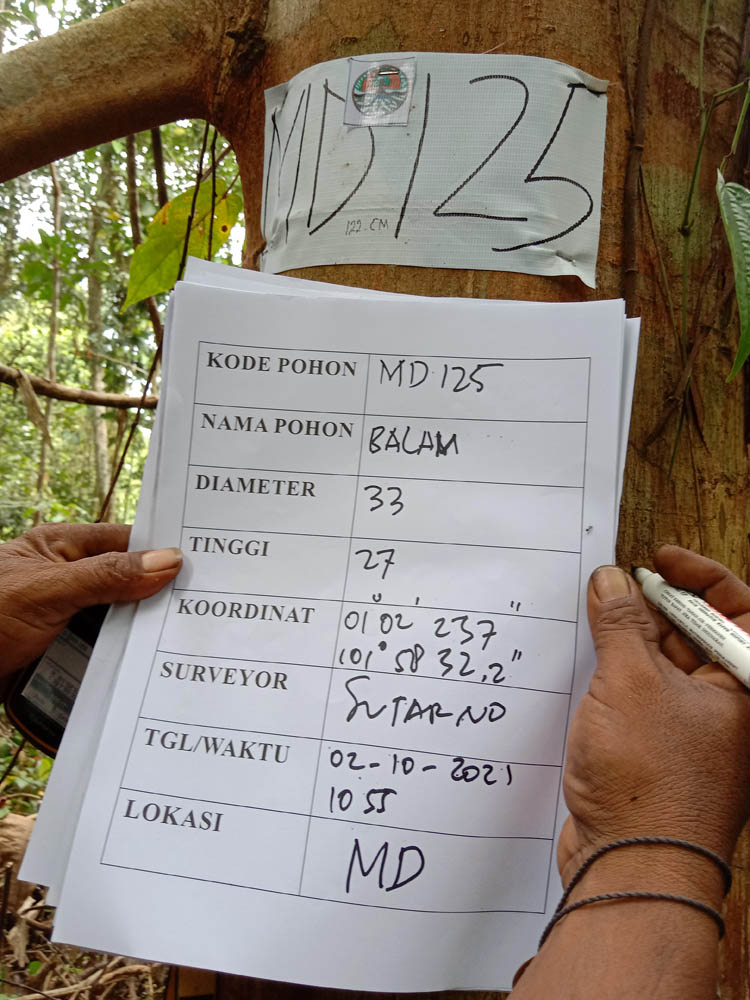 MD125
122 CM
KODE POHON MD 125
NAMA POHON BALAM
DIAMETER 33
TINGGI 27
KOORDINAT 01° 02' 237"
101° 58 32,2"
SURVEYOR SUTARNO
TGL/WAKTU 02-10-2021
10 55
LOKASI MD